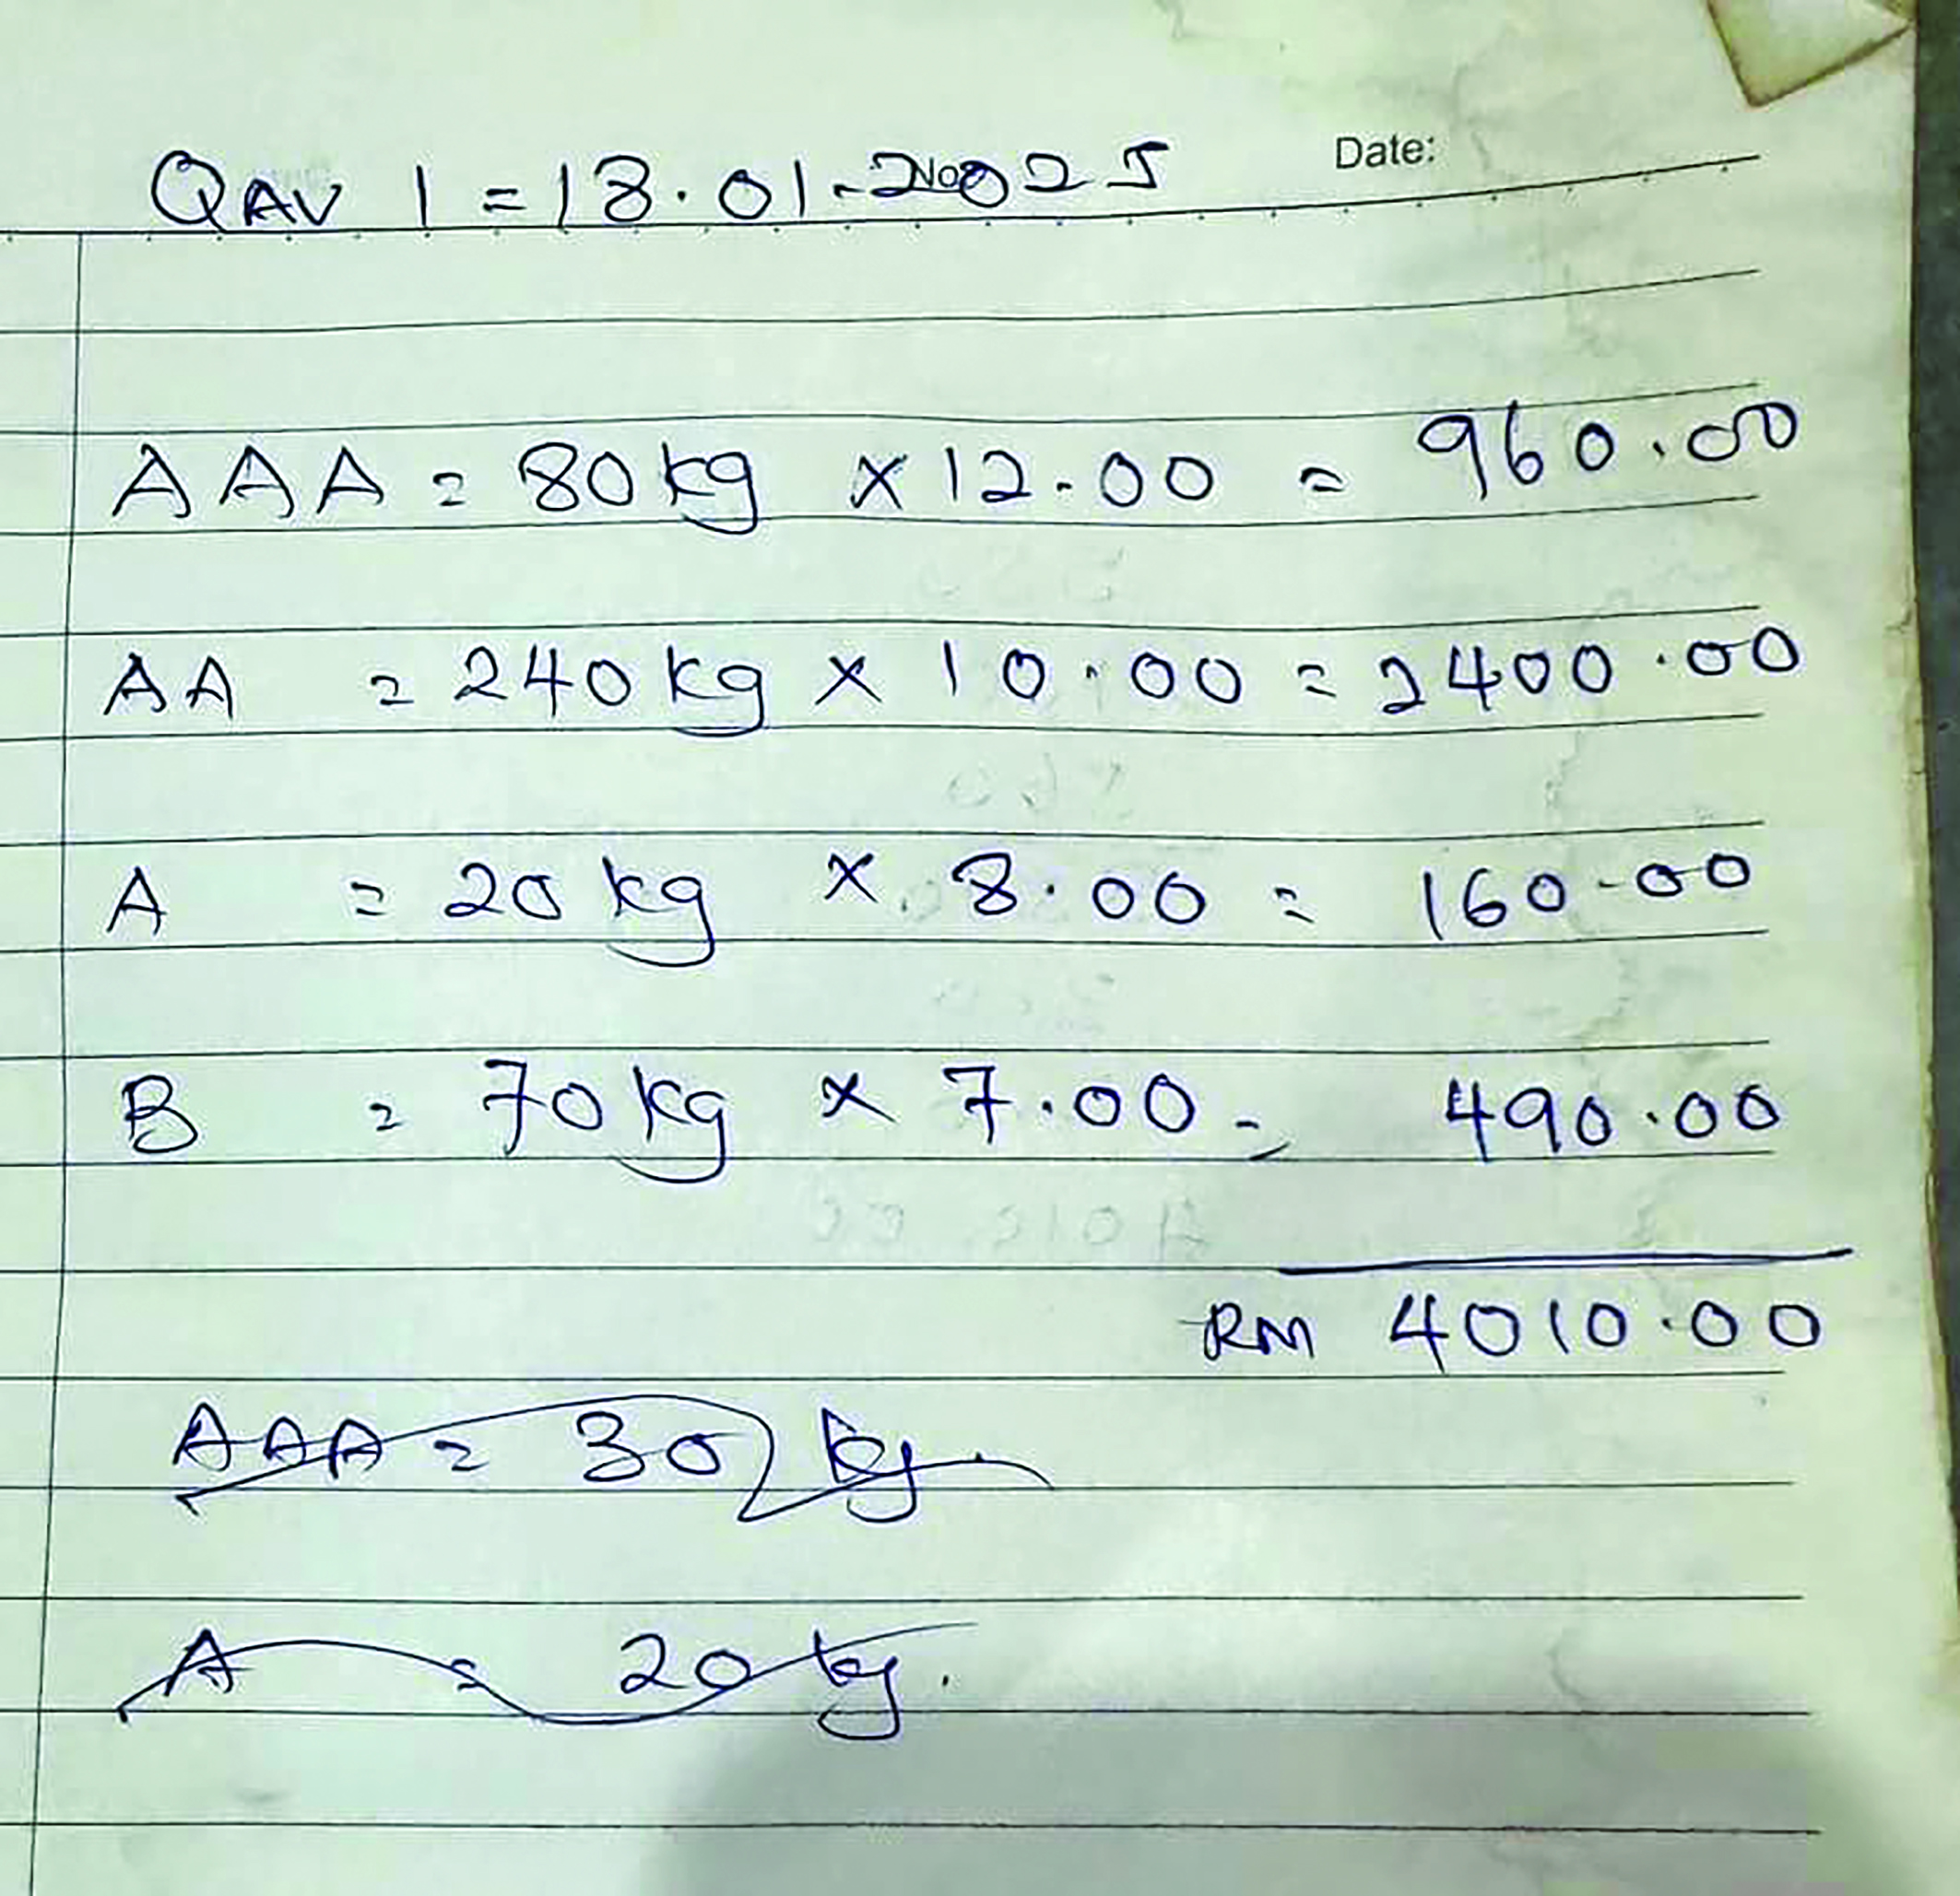 QAV 1 = 18.01-2025
No:
Date:
AAA = 80 kg × 12.00 = 960.00
AA = 240 kg × 10.00 = 2400.00
A = 20 kg × 8.00 = 160.00
B = 70 kg × 7.00 = 490.00
RM 4010.00
AAA = 30 kg.
A = 20 kg.